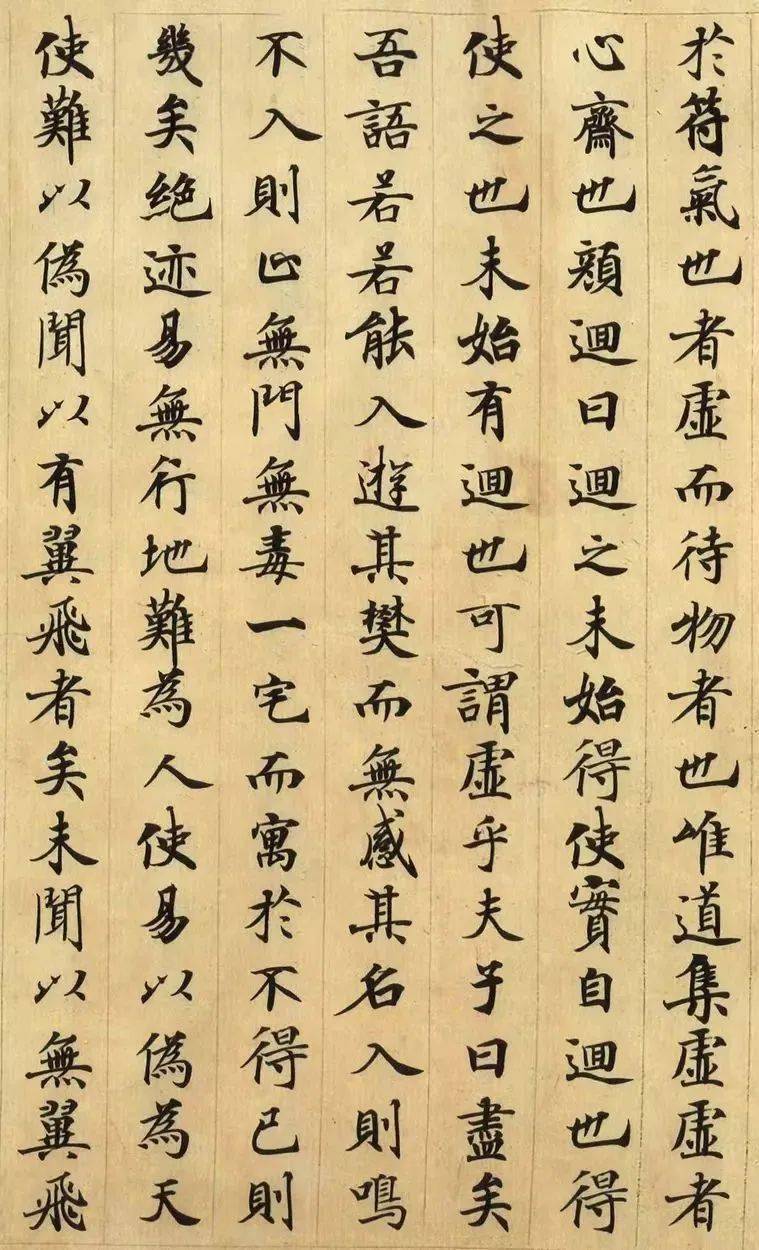 於符氣也者虛而待物者也唯道集虛虛者
心齋也顏迴曰迴之未始得使實自迴也得
使之也未始有迴也可謂虛乎夫子曰盡矣
吾語若若能入遊其樊而無感其名入則鳴
不入則止無門無毒一宅而寓於不得已則
幾矣絕迹易無行地難為人使易以偽為天
使難以偽聞以有翼飛者矣未聞以無翼飛